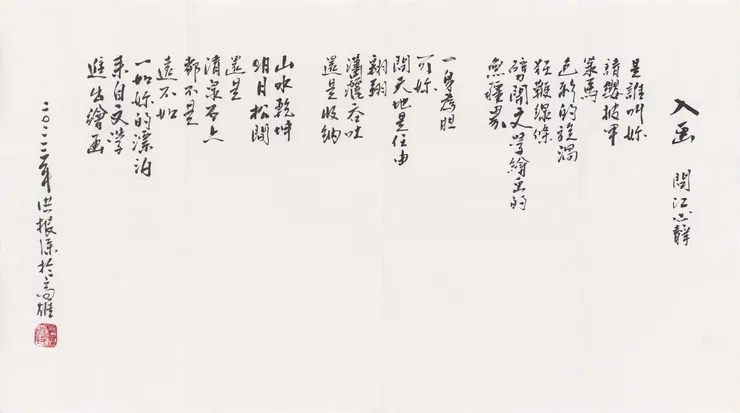 入画 問江心靜
是誰叫妳
請纓披甲
策馬
色彩的旋渦
狂鞭線條
劈開文學繪画的
無疆界
一身孝胆
可妳
問天地是任由
翱翔
瀟灑吞吐
還是收納
山水乾坤
明月松間
還是
清泉石上
都不是
遠不如
一如妳的漂泊
來自文學
進出繪画
二〇二二年洪根深於高雄